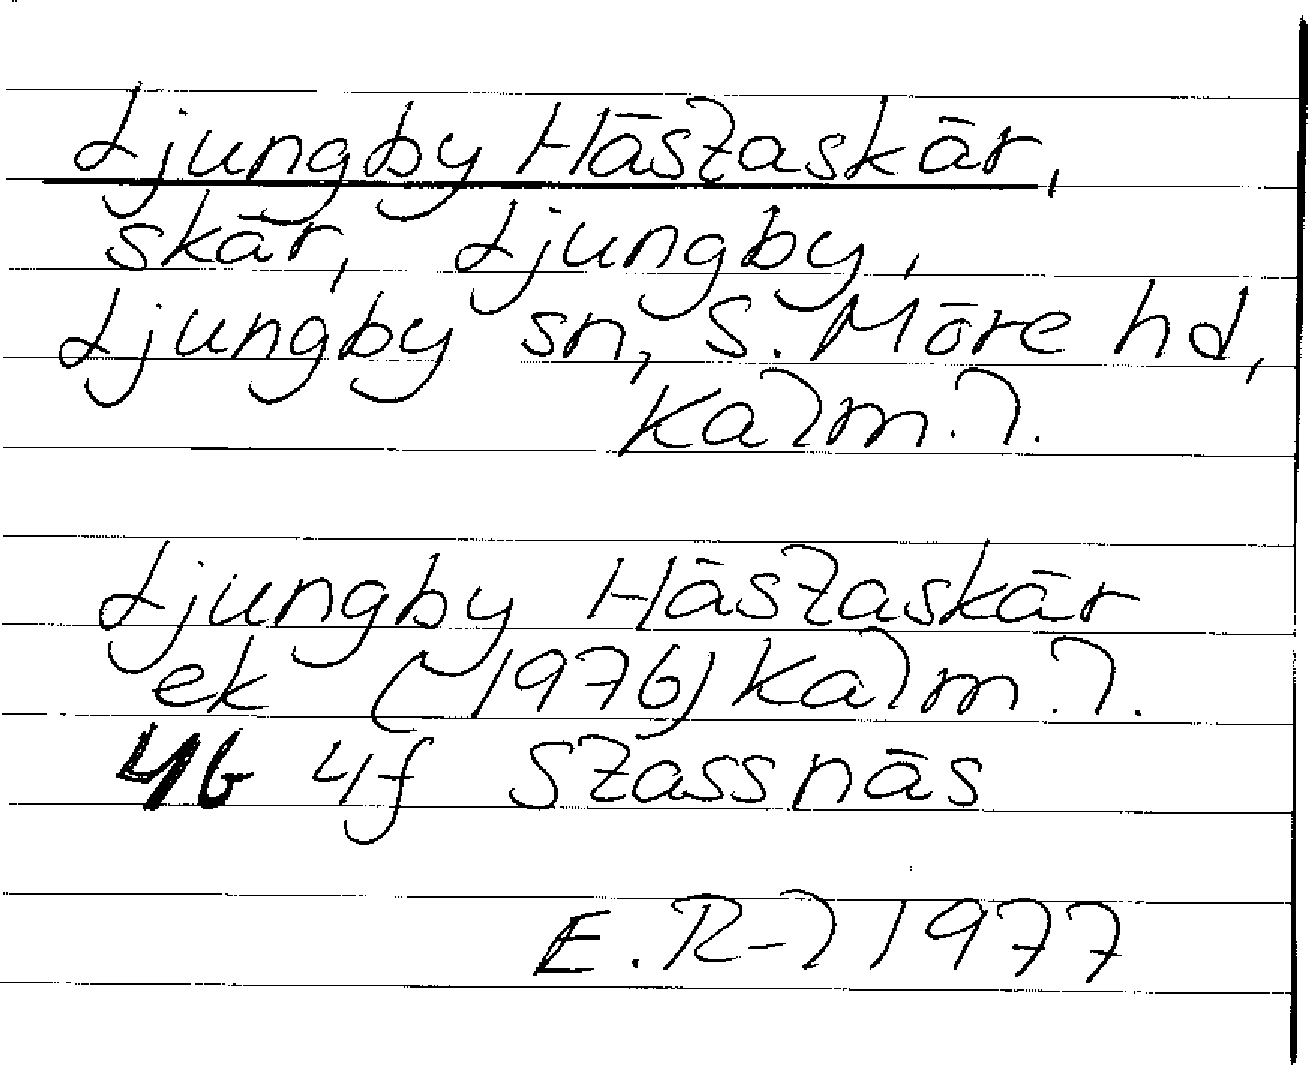 Ljungby Hästaskär,
skär, Ljungby,
Ljungby sn, S. Möre hd,
Kalm. l.
Ljungby Hästaskär
ek (1976) Kalm. l.
4G 4f Stassnäs
E. R-l 1977